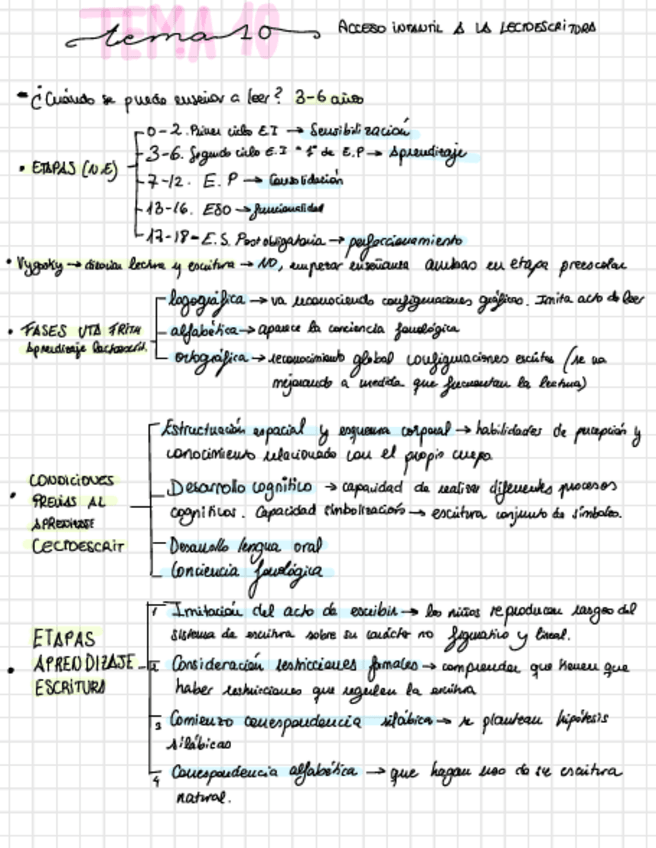 TEMA 10
tema 10 ACCESO INFANTIL A LA LECTOESCRITURA
- ¿Cuándo se puede enseñar a leer? 3-6 años
• ETAPAS (N.E)
0-2. Primer ciclo E.I → Sensibilización
3-6. Segundo ciclo E.I "1º de E.P → Aprendizaje
7-12. E.P → Consolidación
13-16. ESO → funcionalidad
17-18- E.S. Postobligatoria → perfeccionamiento
• Vygosky → disociar lectura y escritura → NO, empezar enseñanza ambas en etapa preescolar
• FASES UTA FRITA
Aprendizaje lectoescrit.
logográfica → va reconociendo configuraciones gráficas. Imita acto de leer
alfabética → aparece la conciencia fonológica
ortográfica → reconocimiento global configuraciones escritas (se va
mejorando a medida que frecuentan la lectura)
• CONDICIONES
PREVIAS AL
APRENDIZAJE
LECTOESCRIT
Estructuración espacial y esquema corporal → habilidades de percepción y
conocimiento relacionado con el propio cuerpo
Desarrollo cognitivo → capacidad de realizar diferentes procesos
cognitivos. Capacidad simbolización → escritura conjunto de símbolos.
Desarrollo lengua oral
Conciencia fonológica
• ETAPAS
APRENDIZAJE
ESCRITURA
1 Imitación del acto de escribir → los niños reproducen rasgos del
sistema de escritura sobre su carácter no figurativo y lineal.
2 Consideración restricciones formales → comprenden que tienen que
haber restricciones que regulen la escritura
3 Comienzo correspondencia silábica → se plantean hipótesis
silábicas
4 Correspondencia alfabética → que hagan uso de se escritura
natural.